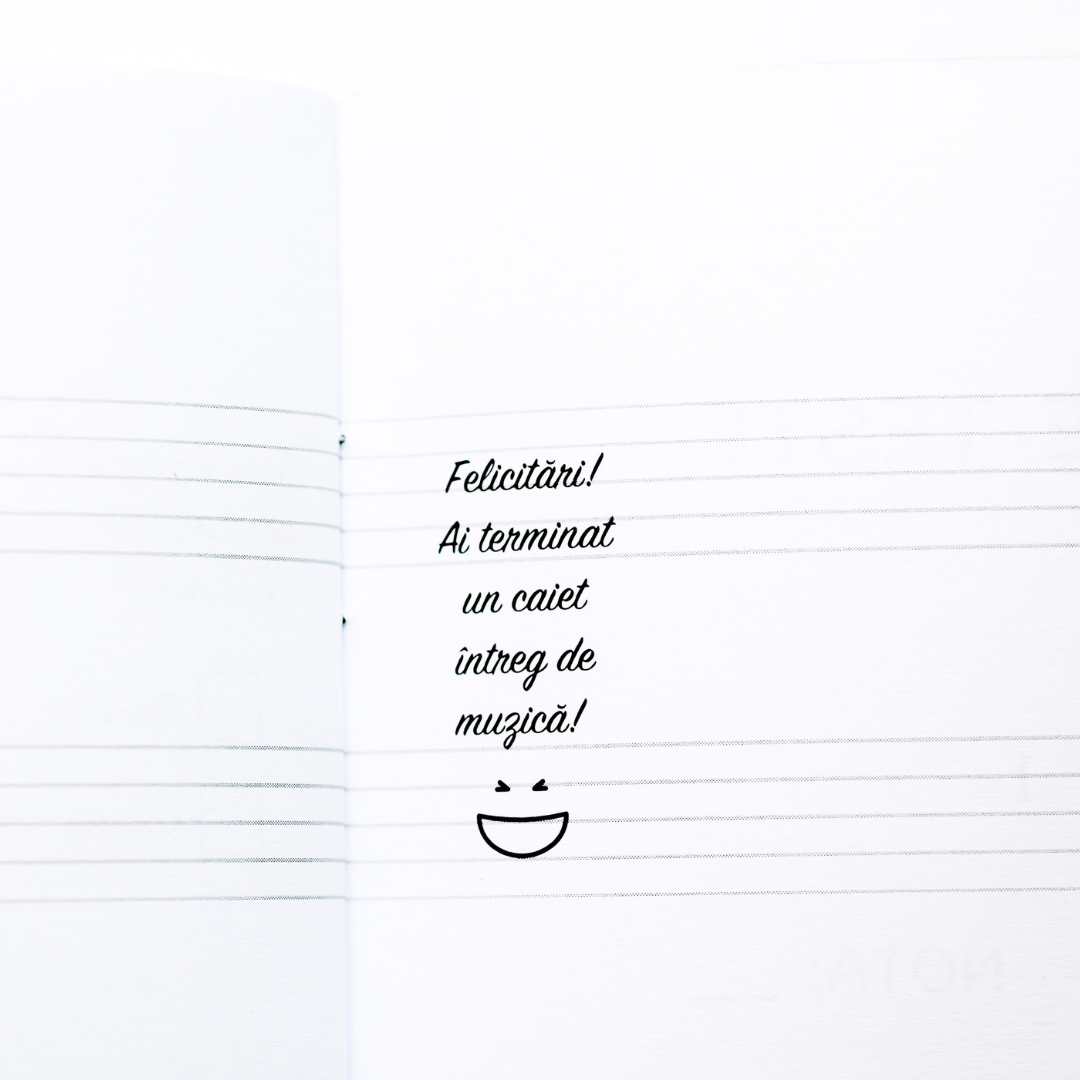 Felicitări!
Ai terminat
un caiet
întreg de
muzică!
NOTA